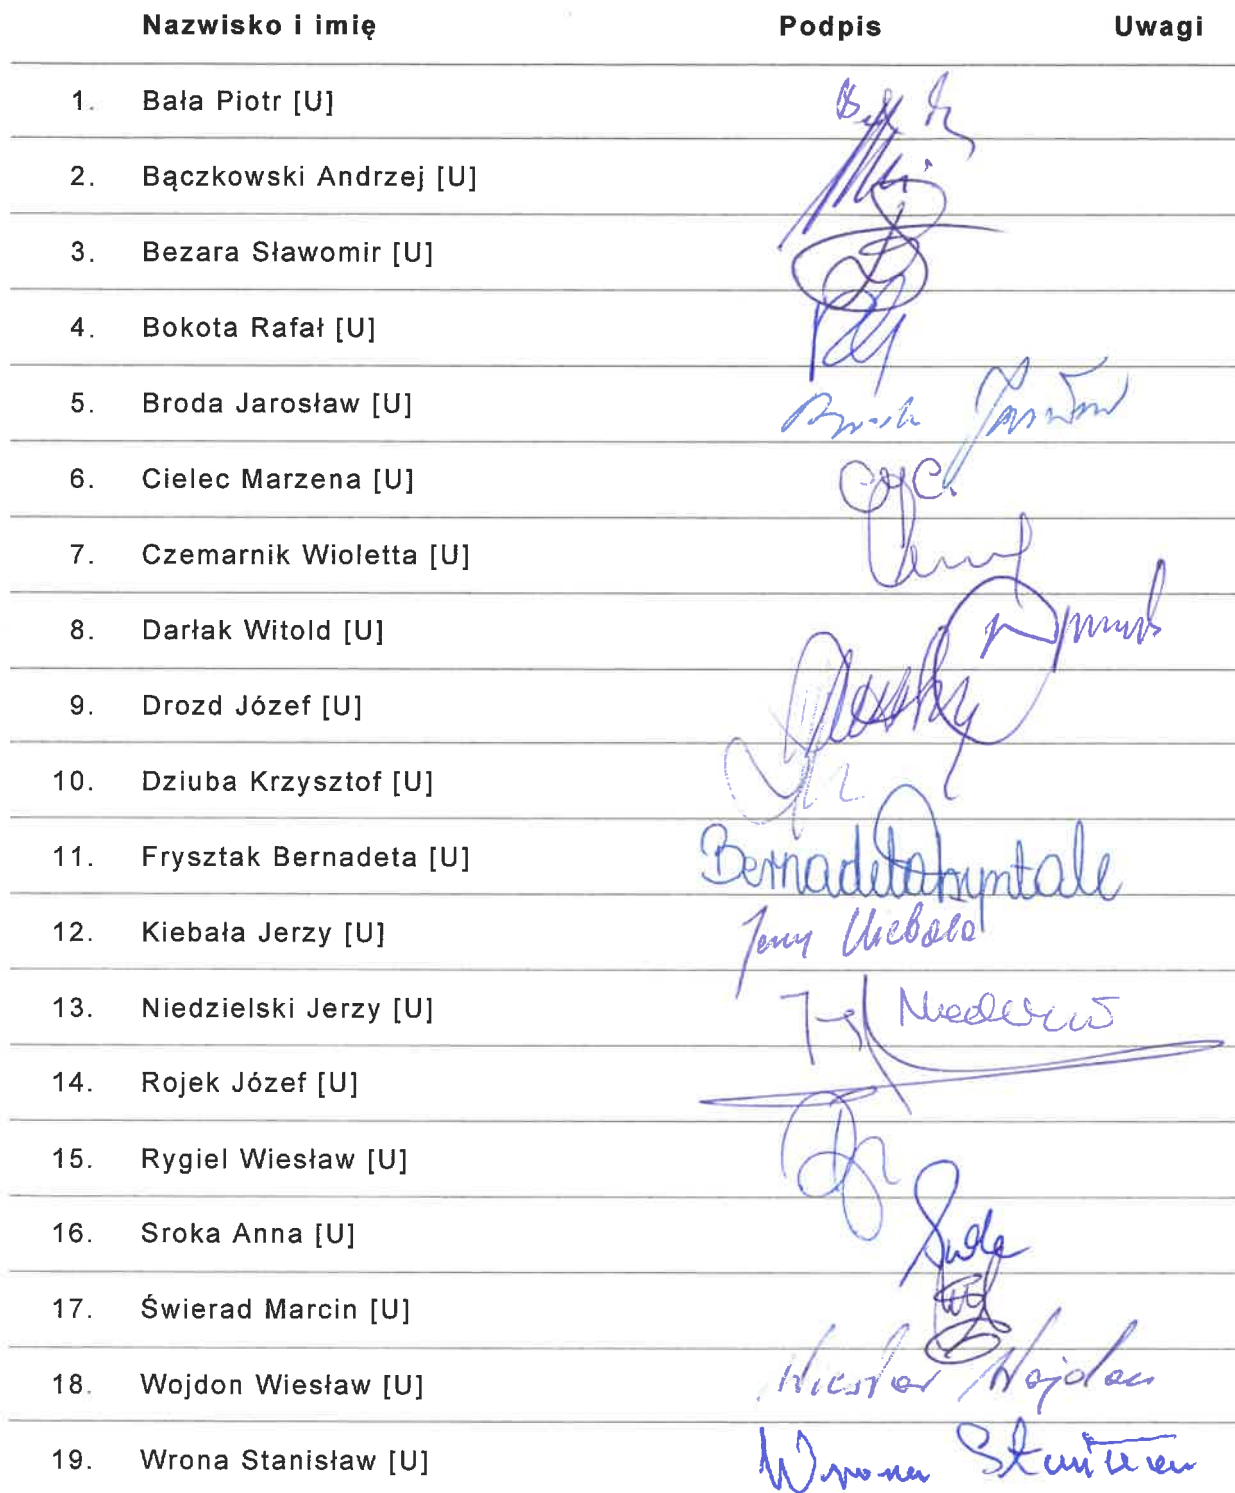 Nazwisko i imię Podpis Uwagi
1. Bała Piotr [U]
2. Bączkowski Andrzej [U]
3. Bezara Sławomir [U]
4. Bokota Rafał [U]
5. Broda Jarosław [U]
6. Cielec Marzena [U]
7. Czemarnik Wioletta [U]
8. Darłak Witold [U]
9. Drozd Józef [U]
10. Dziuba Krzysztof [U]
11. Frysztak Bernadeta [U] Bernadeta
12. Kiebała Jerzy [U] Jerzy Kiebała
13. Niedzielski Jerzy [U]
14. Rojek Józef [U]
15. Rygiel Wiesław [U]
16. Sroka Anna [U]
17. Świerad Marcin [U]
18. Wojdon Wiesław [U] Wiesław Wojdon
19. Wrona Stanisław [U] Wrona Stanisław